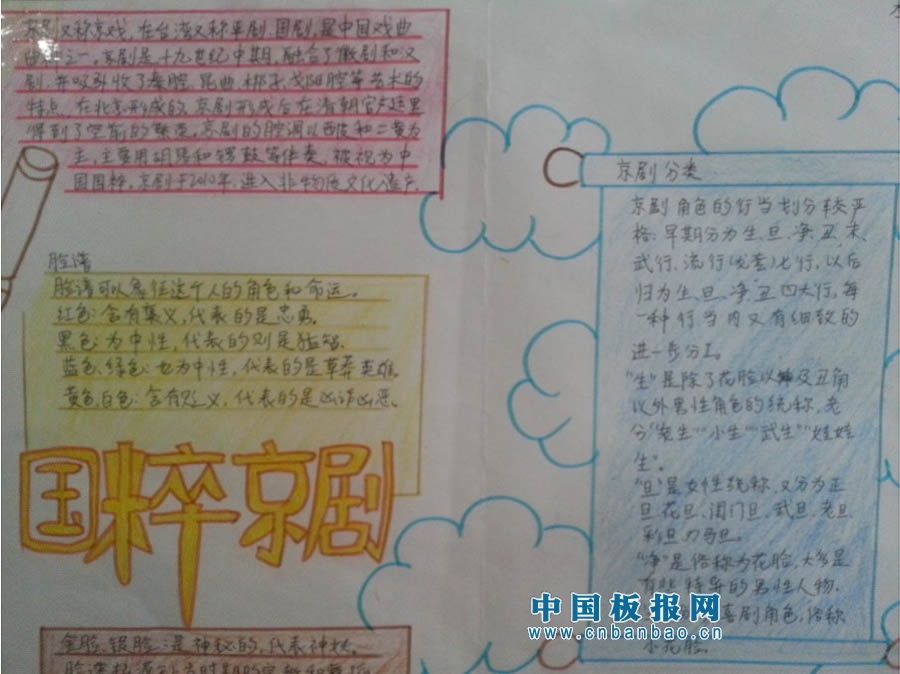 京剧又称京戏,在台湾又称平剧,国剧,是中国戏曲
之一,京剧是十九世纪中期,融合了徽剧和汉
剧,并吸收了秦腔,昆曲,梆子,弋阳腔等艺术的
特点,在北京形成的,京剧形成后在清朝宫廷里
得到了空前的繁荣,京剧的腔调以西皮和二黄为
主,主要用胡琴和锣鼓等伴奏,被视为中
国国粹,京剧于2010年,进入非物质文化遗产,
脸谱
脸谱可以象征这个人的角色和命运。
红色:含有褒义,代表的是忠勇。
黑色:为中性,代表的则是猛智.
蓝色、绿色:也为中性,代表的是草莽英雄.
黄色白色:含有贬义,代表的是凶诈凶恶.
国粹京剧
金脸、银脸:是神秘的,代表神妖。
京剧分类
京剧角色的行当划分较严
格:早期分为生、旦、净、丑、末、
武行、流行七行,以后
归为生、旦、净、丑四大行,每
一种行当内又有细致的
进一步分工。
"生"是除了花脸以及丑角
以外男性角色的统称,老
分"老生""小生""武生""娃娃
生"。
"旦"是女性统称,又分为正
旦、花旦、闺门旦、武旦、老旦
彩旦、刀马旦。
"净"是俗称为花脸,大多是
有些特异的男性人物.
喜剧角色,俗称
小花脸。
中国板报网
www.cnbanbao.cn